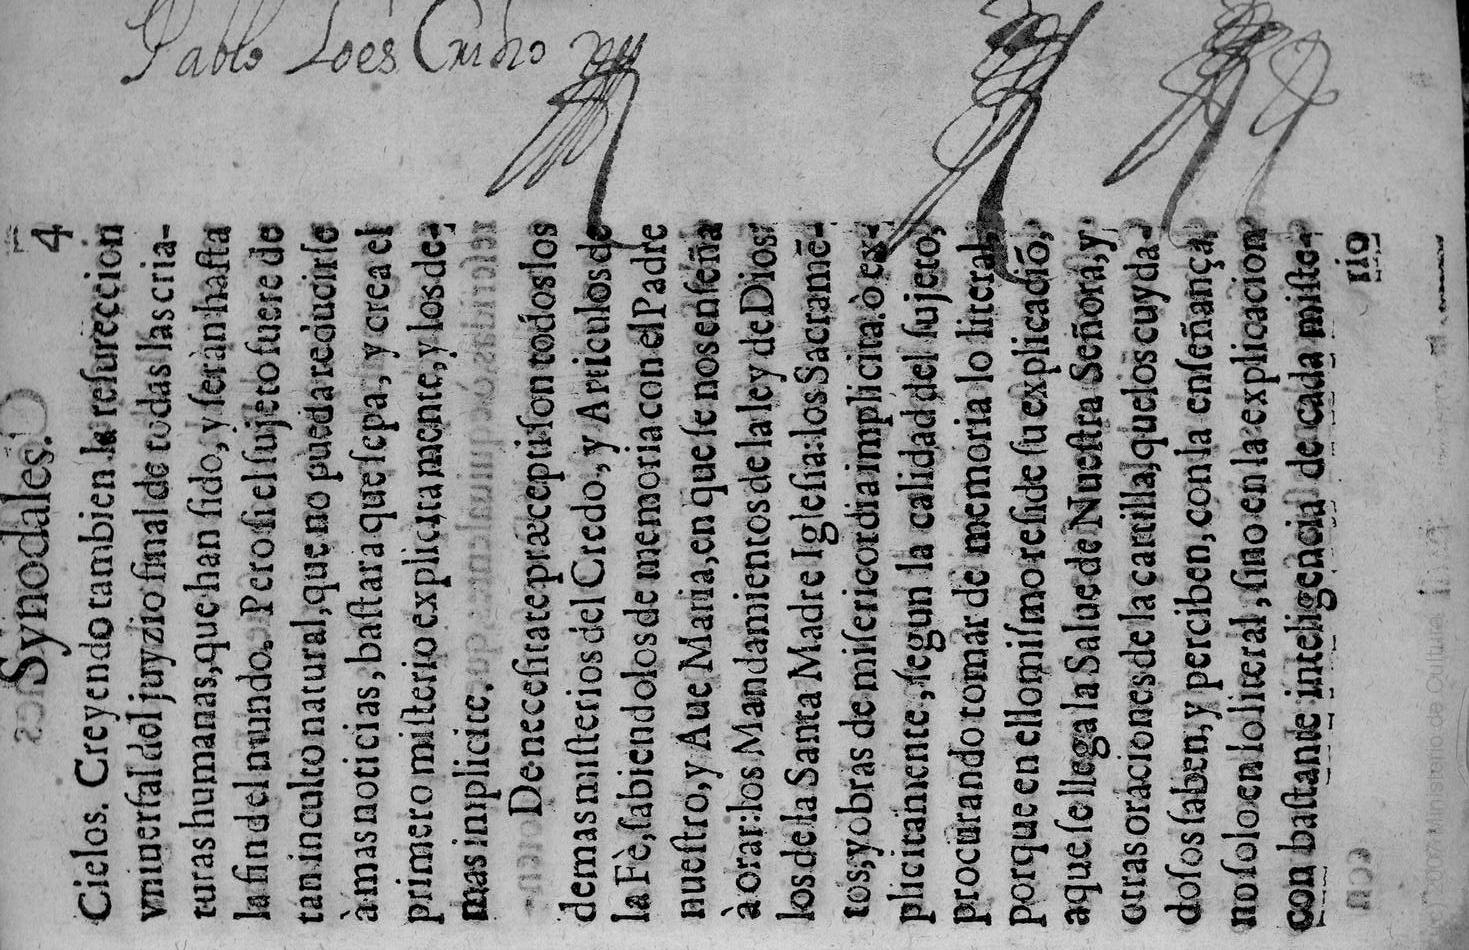 Synodales.
4
Cielos. Creyendo tambien la resurreccion
vniuersal del juyzio final de todas las cria-
turas humanas, que han sido, y seràn hasta
la fin del mundo. Pero si el sujeto fuere de
tan inculto natural, que no pueda reducirse
à mas noticias, bastara que sepa, y crea el
primero misterio explicitamente, y los de-
mas inplicite.
De necesitate præcepti son todos los
demas misterios del Credo, y Articulos de
la Fè, sabiendolos de memoria con el Padre
nuestro, y Aue Maria, en que se nos enseña
à orar: los Mandamientos de la ley de Dios:
los de la Santa Madre Iglesia: los Sacramē-
tos, y obras de misericordia implicita, ò ex-
plicitamente, segun la calidad del sujeto,
procurando tomar de memoria lo literal,
porque en ello mismo reside su explicaciō,
a que se llega la Salue de Nuestra Señora, y
otras oraciones de la cartilla, que los cuyda-
dosos saben, y perciben, con la enseñança,
no solo en lo literal, sino en la explicacion
con bastante inteligencia de cada miste-
rio
Pablo
(c) 2007 Ministerio de Cultura